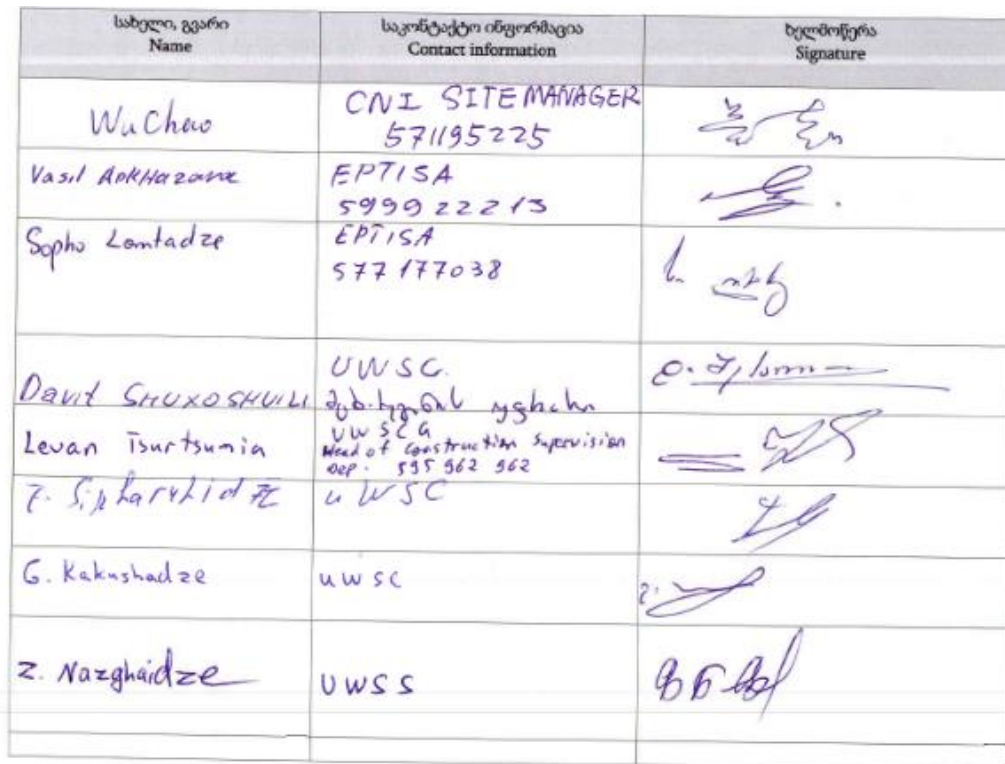 სახელი, გვარი
Name
საკონტაქტო ინფორმაცია
Contact information
ხელმოწერა
Signature
Wu Chao
CNI SITE MANAGER
571195225
Vasil
EPTISA
599922213
Sopho Lomtadze
EPTISA
577177038
Davit SHUXOSHVILI
UWSC.
Levan Tsurtsumia
UWSCG
Head of construction Supervision
Dep. 595 962 962
UWSC
G. Kakushadze
UWSC
Z. Nazghaidze
UWSS